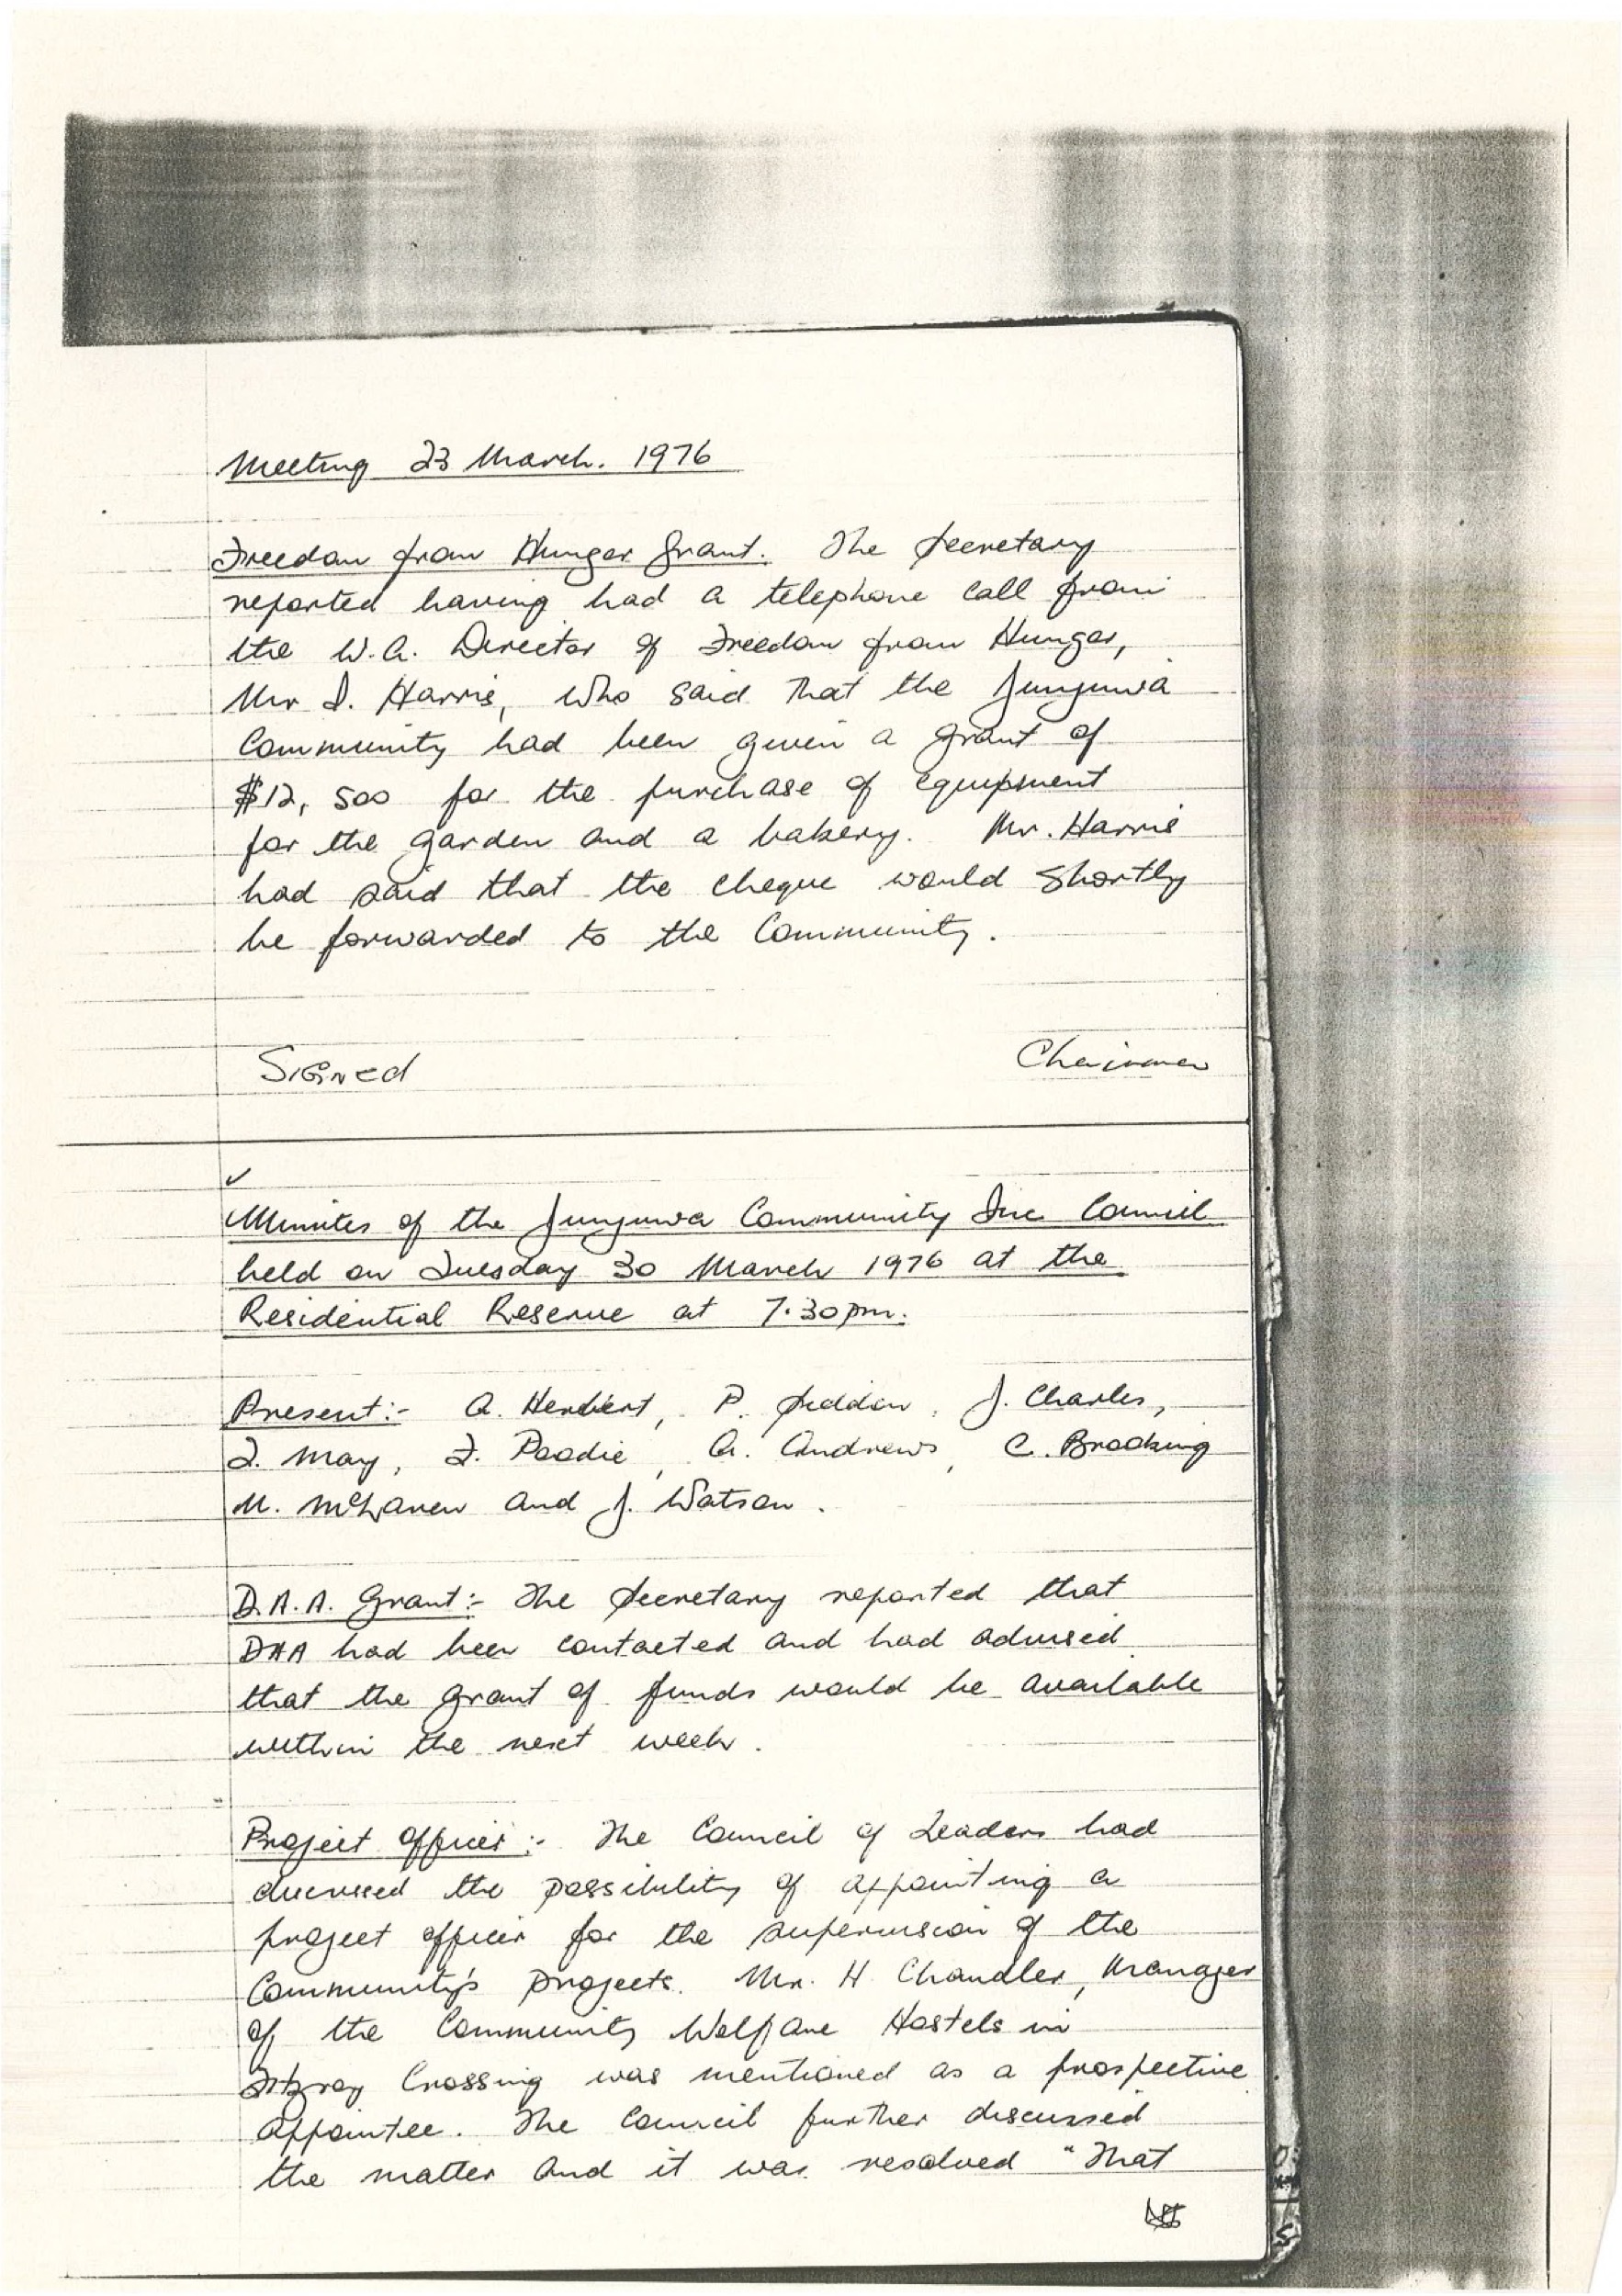 Meeting 23 March. 1976
Freedom from Hunger Grant. The Secretary
reported having had a telephone call from
the W.A. Director of Freedom from Hunger,
Mr I. Harris, who said that the Junjuwa
Community had been given a grant of
$12,500 for the purchase of equipment
for the garden and a bakery. Mr. Harris
had said that the cheque would shortly
be forwarded to the Community.
Signed Chairman
Minutes of the Junjuwa Community Inc Council
held on Tuesday 30 March 1976 at the
Residential Reserve at 7.30pm.
Present:- A. Herbert, P. Seddon, J. Charles,
I. May, I. Poodie, A. Andrews, C. Brocking
M. McLaren and J. Watson.
D.A.A. Grant:- The Secretary reported that
DAA had been contacted and had advised
that the grant of funds would be available
within the next week.
Project Officer:- The Council of Leaders had
discussed the possibility of appointing a
project officer for the supervision of the
Community's projects. Mr. H Chandler, Manager
of the Community Welfare Hostels in
Fitzroy Crossing was mentioned as a prospective
appointee. The Council further discussed
the matter and it was resolved "That